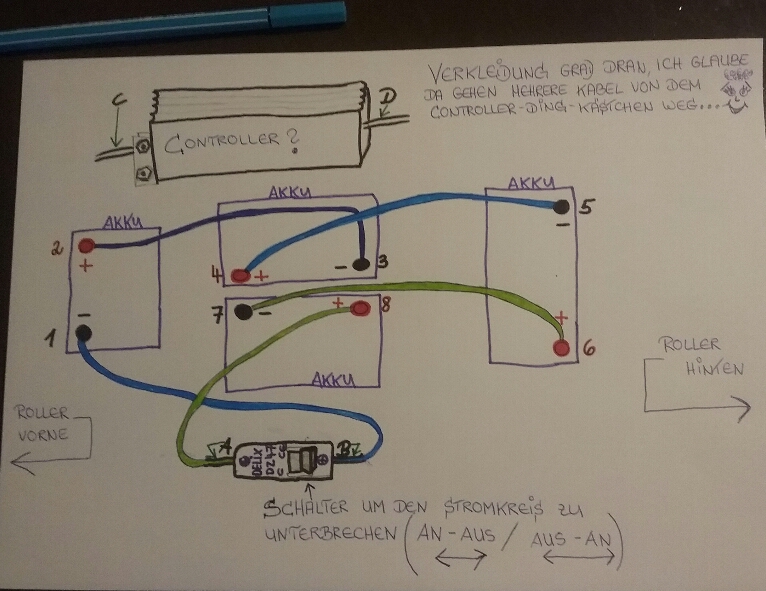 VERKLEIDUNG GRAD DRAN, ICH GLAUBE
DA GEHEN MEHRERE KABEL VON DEM
CONTROLLER-DING-KÄSTCHEN WEG...
C
D
CONTROLLER?
AKKU
AKKU
AKKU
2
+
4 +
- 3
5
-
-
1
7 -
+ 8
+
6
AKKU
ROLLER
HINTEN
ROLLER
VORNE
A
B
DELIXI
DZ47
C
SCHALTER UM DEN STROMKREIS ZU
UNTERBRECHEN (AN-AUS / AUS-AN)